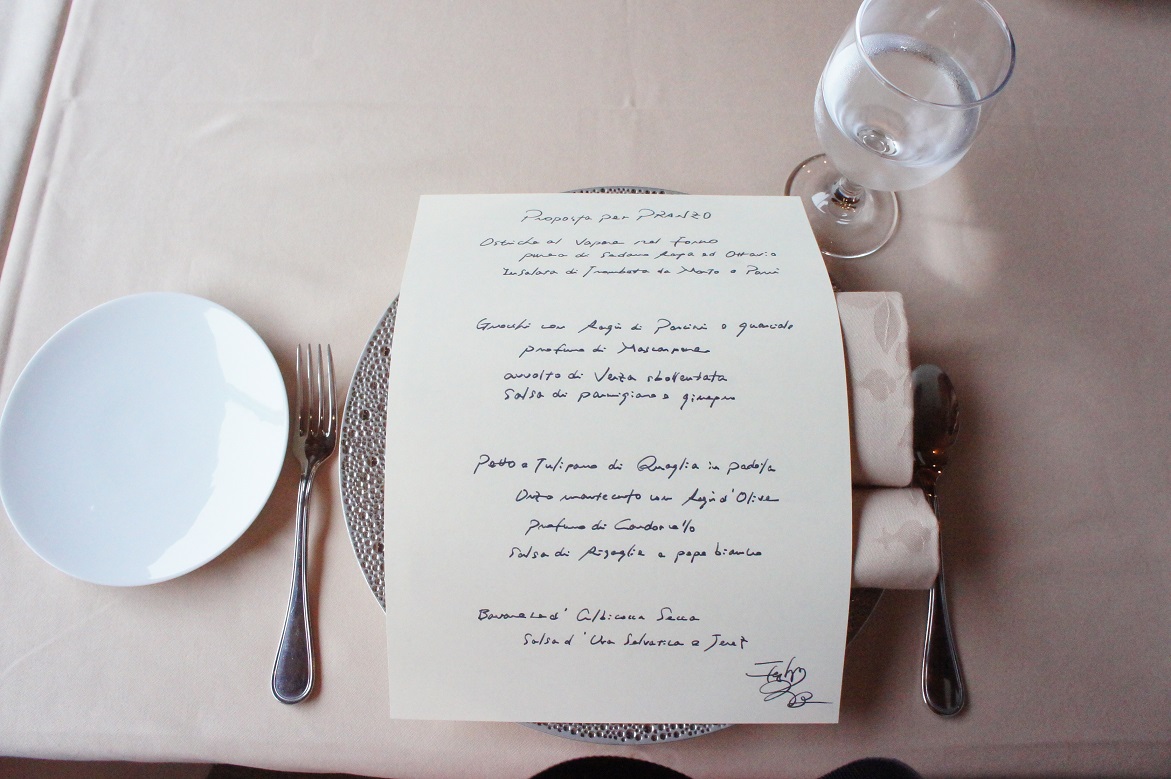 Proposta per PRANZO
Ostriche al Vapore nel Forno
purea di Sedano Rapa ed
Insalata di Trombeta da Morto e
Gnocchi con Ragù di Porcini e guanciale
profumo di Mascarpone
avvolto di Verza sbollentata
Salsa di parmigiano e ginepro
Petto e Tulipano di Quaglia in padella
Orzo mantecato con Ragù d'Olive
Profumo di
Salsa di Rigaglie e pepe bianco
Bavarese d'Albicocca Secca
Salsa d'Uva Selvatica e Jerez